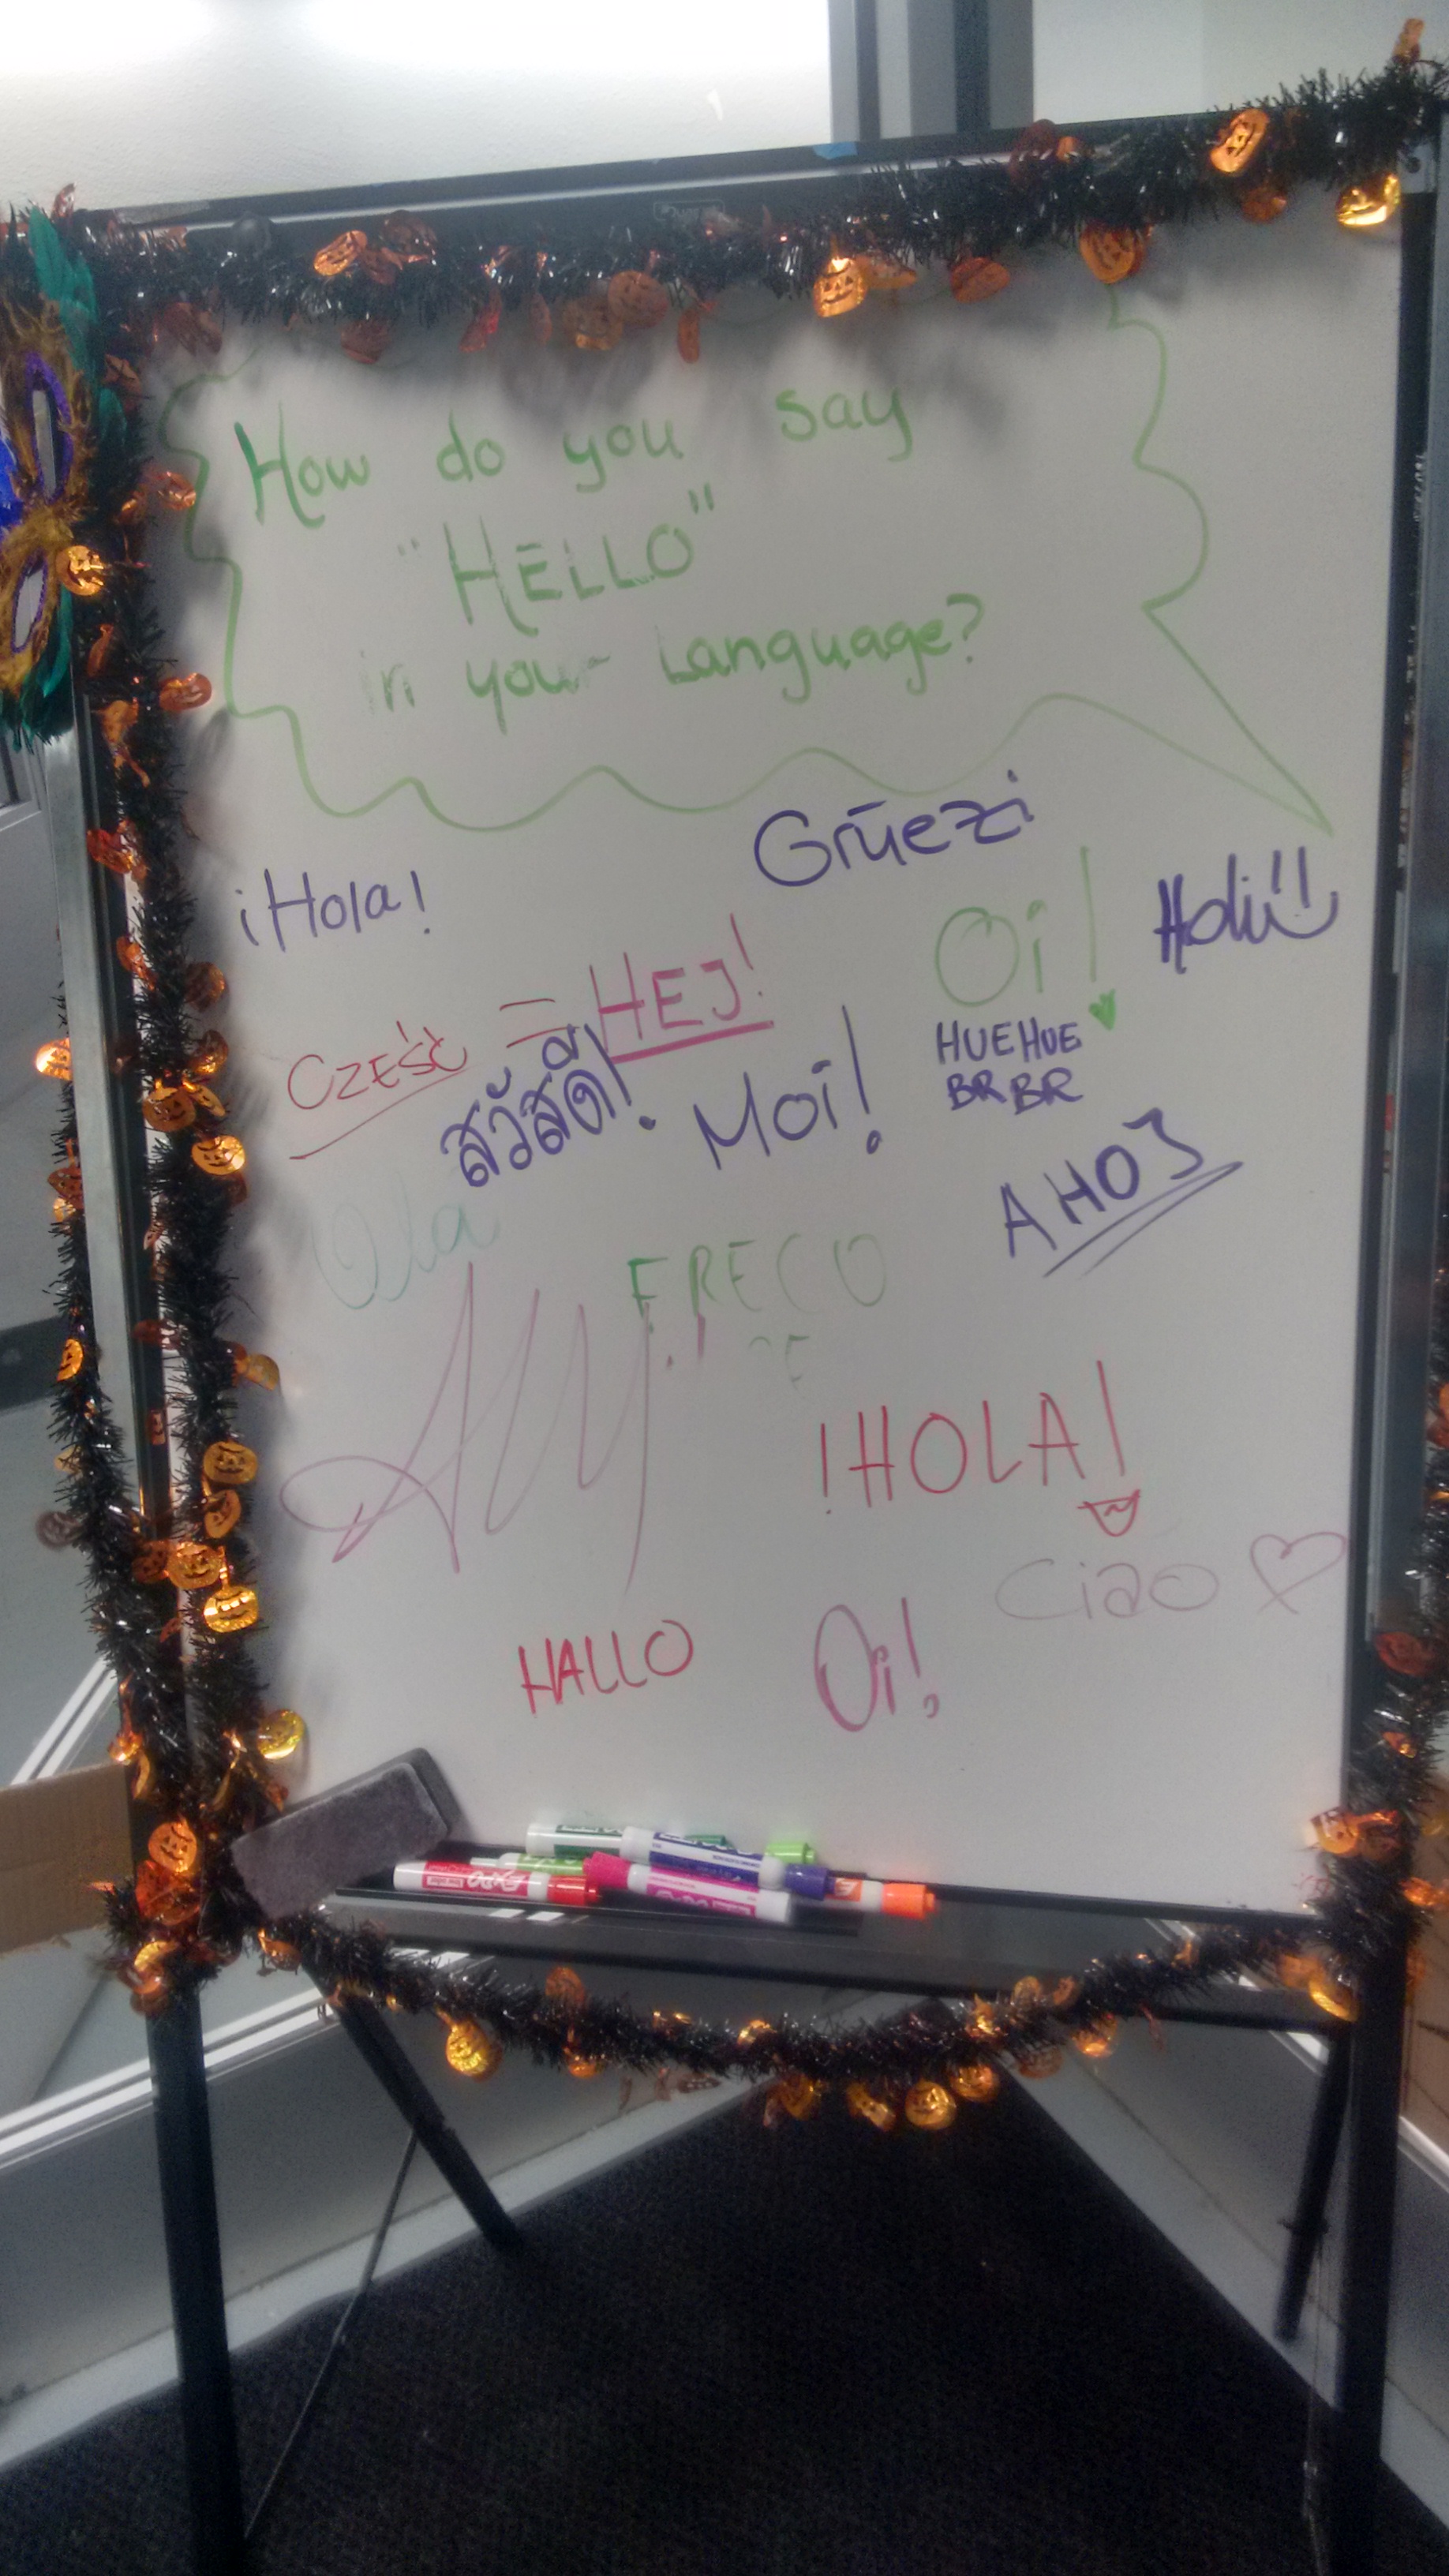 How do you say
"HELLO"
in your Language?
Grüezi
¡Hola!
Oi!
Holiii
CZEŚĆ = HEJ!
HUEHUE
BRBR
สวัสดี!
Moi!
AHOJ
Ola
FRECO
!HOLA!
Ciao
HALLO
Oi!